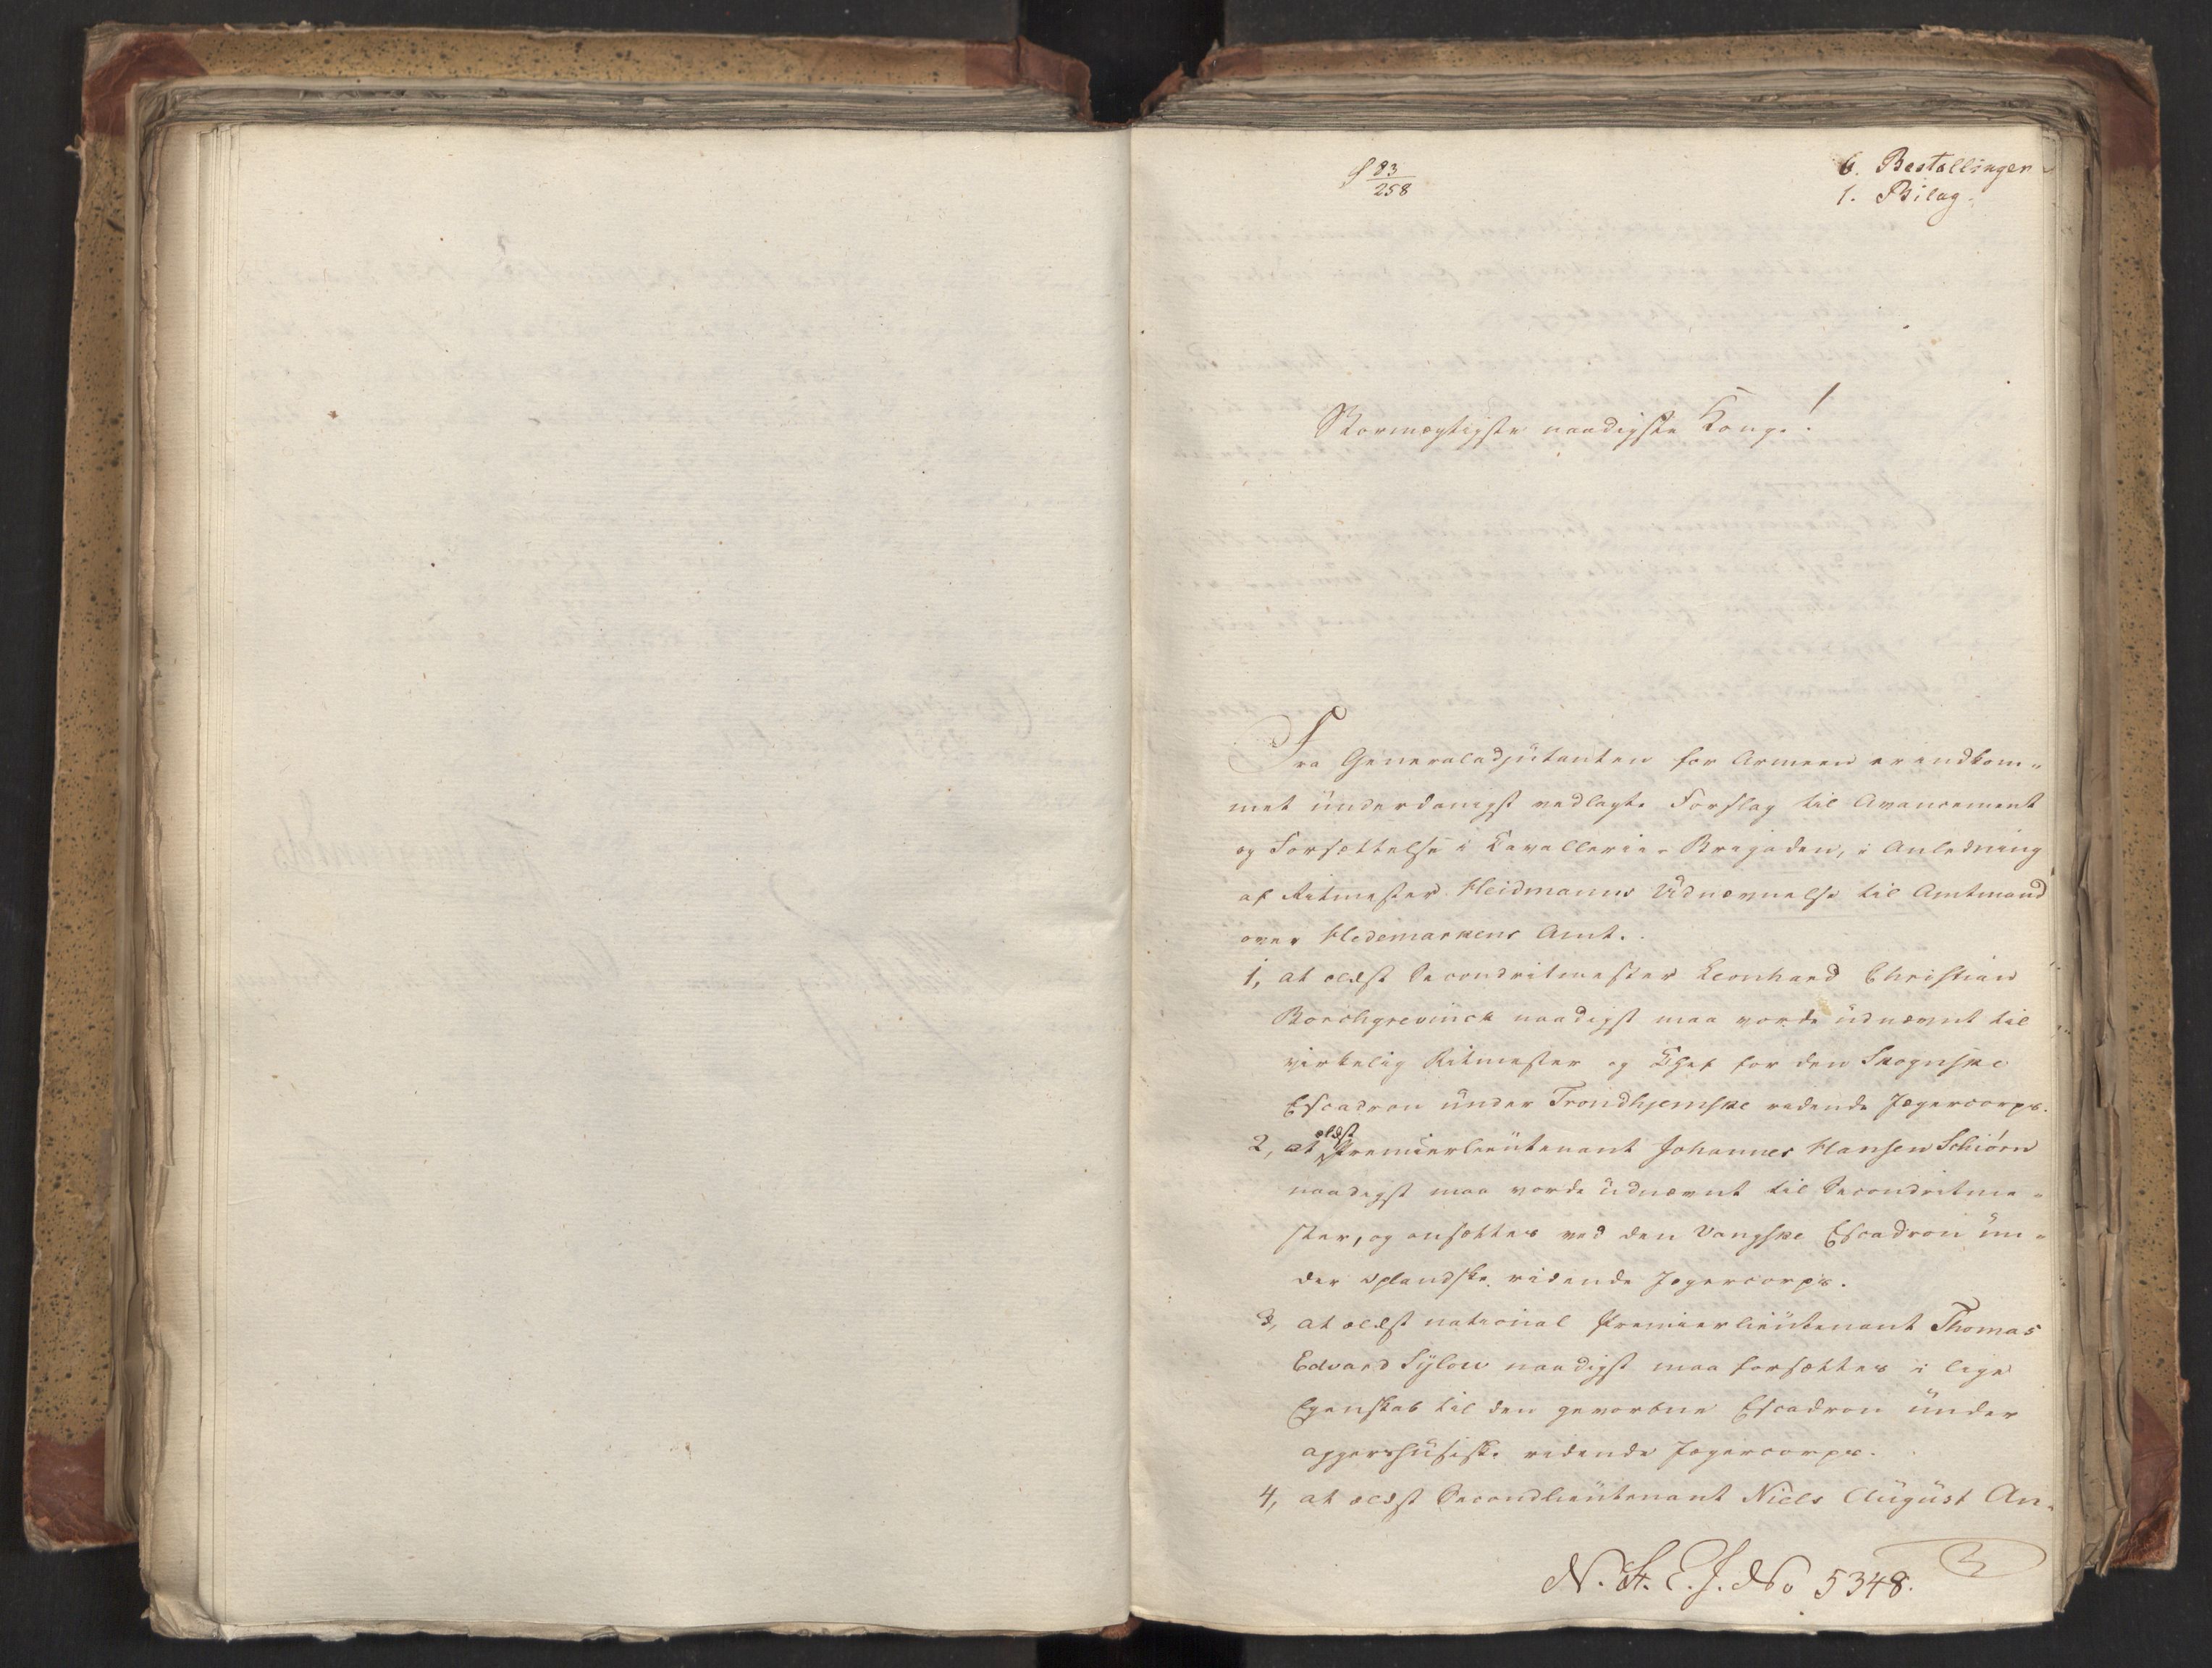 § 83/258
6. Bestallinger
1. Bilag.
Stormægtigste naadigste Konge!
Fra Generaladjütanten for Armeen er indkom-
met ünderdanigst vedlagte Forslag til Avancement
og Forsættelse i Cavallerie-Brigaden, i Anledning
af Ritmester Heidmanns Udnævnelse til Amtmand
over Hedemarkens Amt.
1, at ældst Secondritmester Leonhard Christian
Borchgrevinck naadigst maa vorde üdnævnt til
virkelig Ritmester og Chef for den Skognske
Escadron ünder Trondhjemske ridende Jægercorps.
2, at ældst Premierlieütenant Johannes Hansen Schiörn
naadigst maa vorde üdnævnt til Secondritme-
ster, og ansættes ved den Vangske Escadron ün-
der oplandske ridende Jægercorps.
3, at ældst national Premierlieütenant Thomas
Edvard Sÿlow naadigst maa forsættes i lige
Egenskab til den gevorbne Escadron ünder
aggershüsiske ridende Jægercorps.
4, at ældst Secondlieütenant Niels Aügüst An-
N. St. E. J. No 5348.